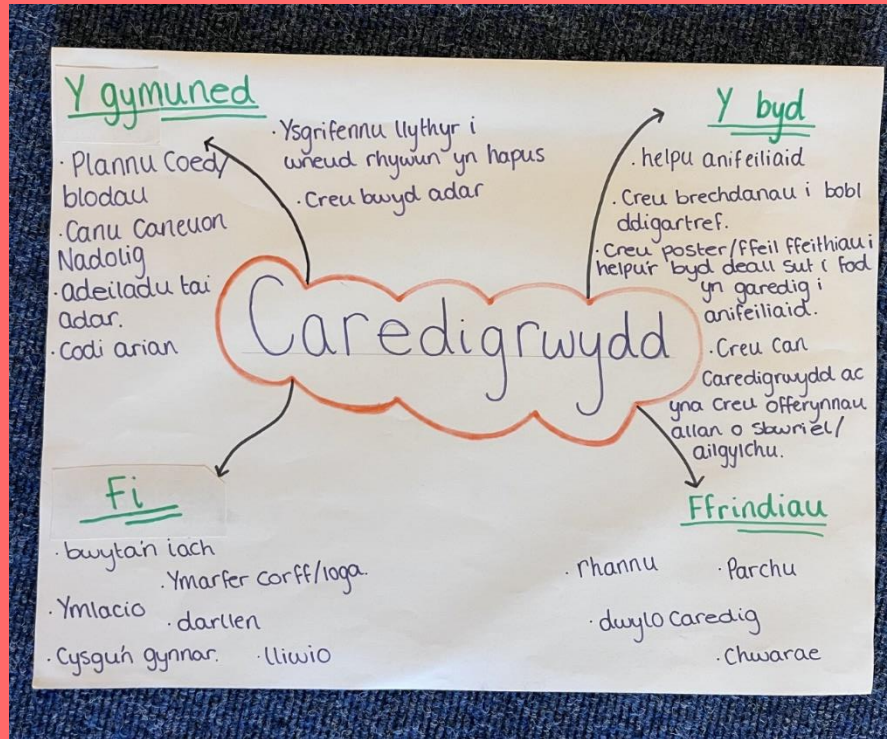 Y gymuned
· Plannu Coed/
blodau
· Canu Caneuon
Nadolig
· adeiladu tai
adar.
· Codi arian
· Ysgrifennu llythyr i
wneud rhywun yn hapus
· Creu bwyd adar
Y byd
· helpu anifeiliaid
· Creu brechdanau i bobl
ddigartref.
· Creu poster/ffeil ffeithiau i
helpu'r byd deall sut i fod
yn garedig i
anifeiliaid.
· Creu can
Caredigrwydd ac
yna creu offerynnau
allan o sbwriel/
ailgylchu.
Caredigrwydd
Fi
· bwyta'n iach
· Ymarfer corff/ioga.
· Ymlacio
· darllen
· Cysgu'n gynnar.
· lliwio
Ffrindiau
· rhannu
· Parchu
· dwylo caredig
· Chwarae